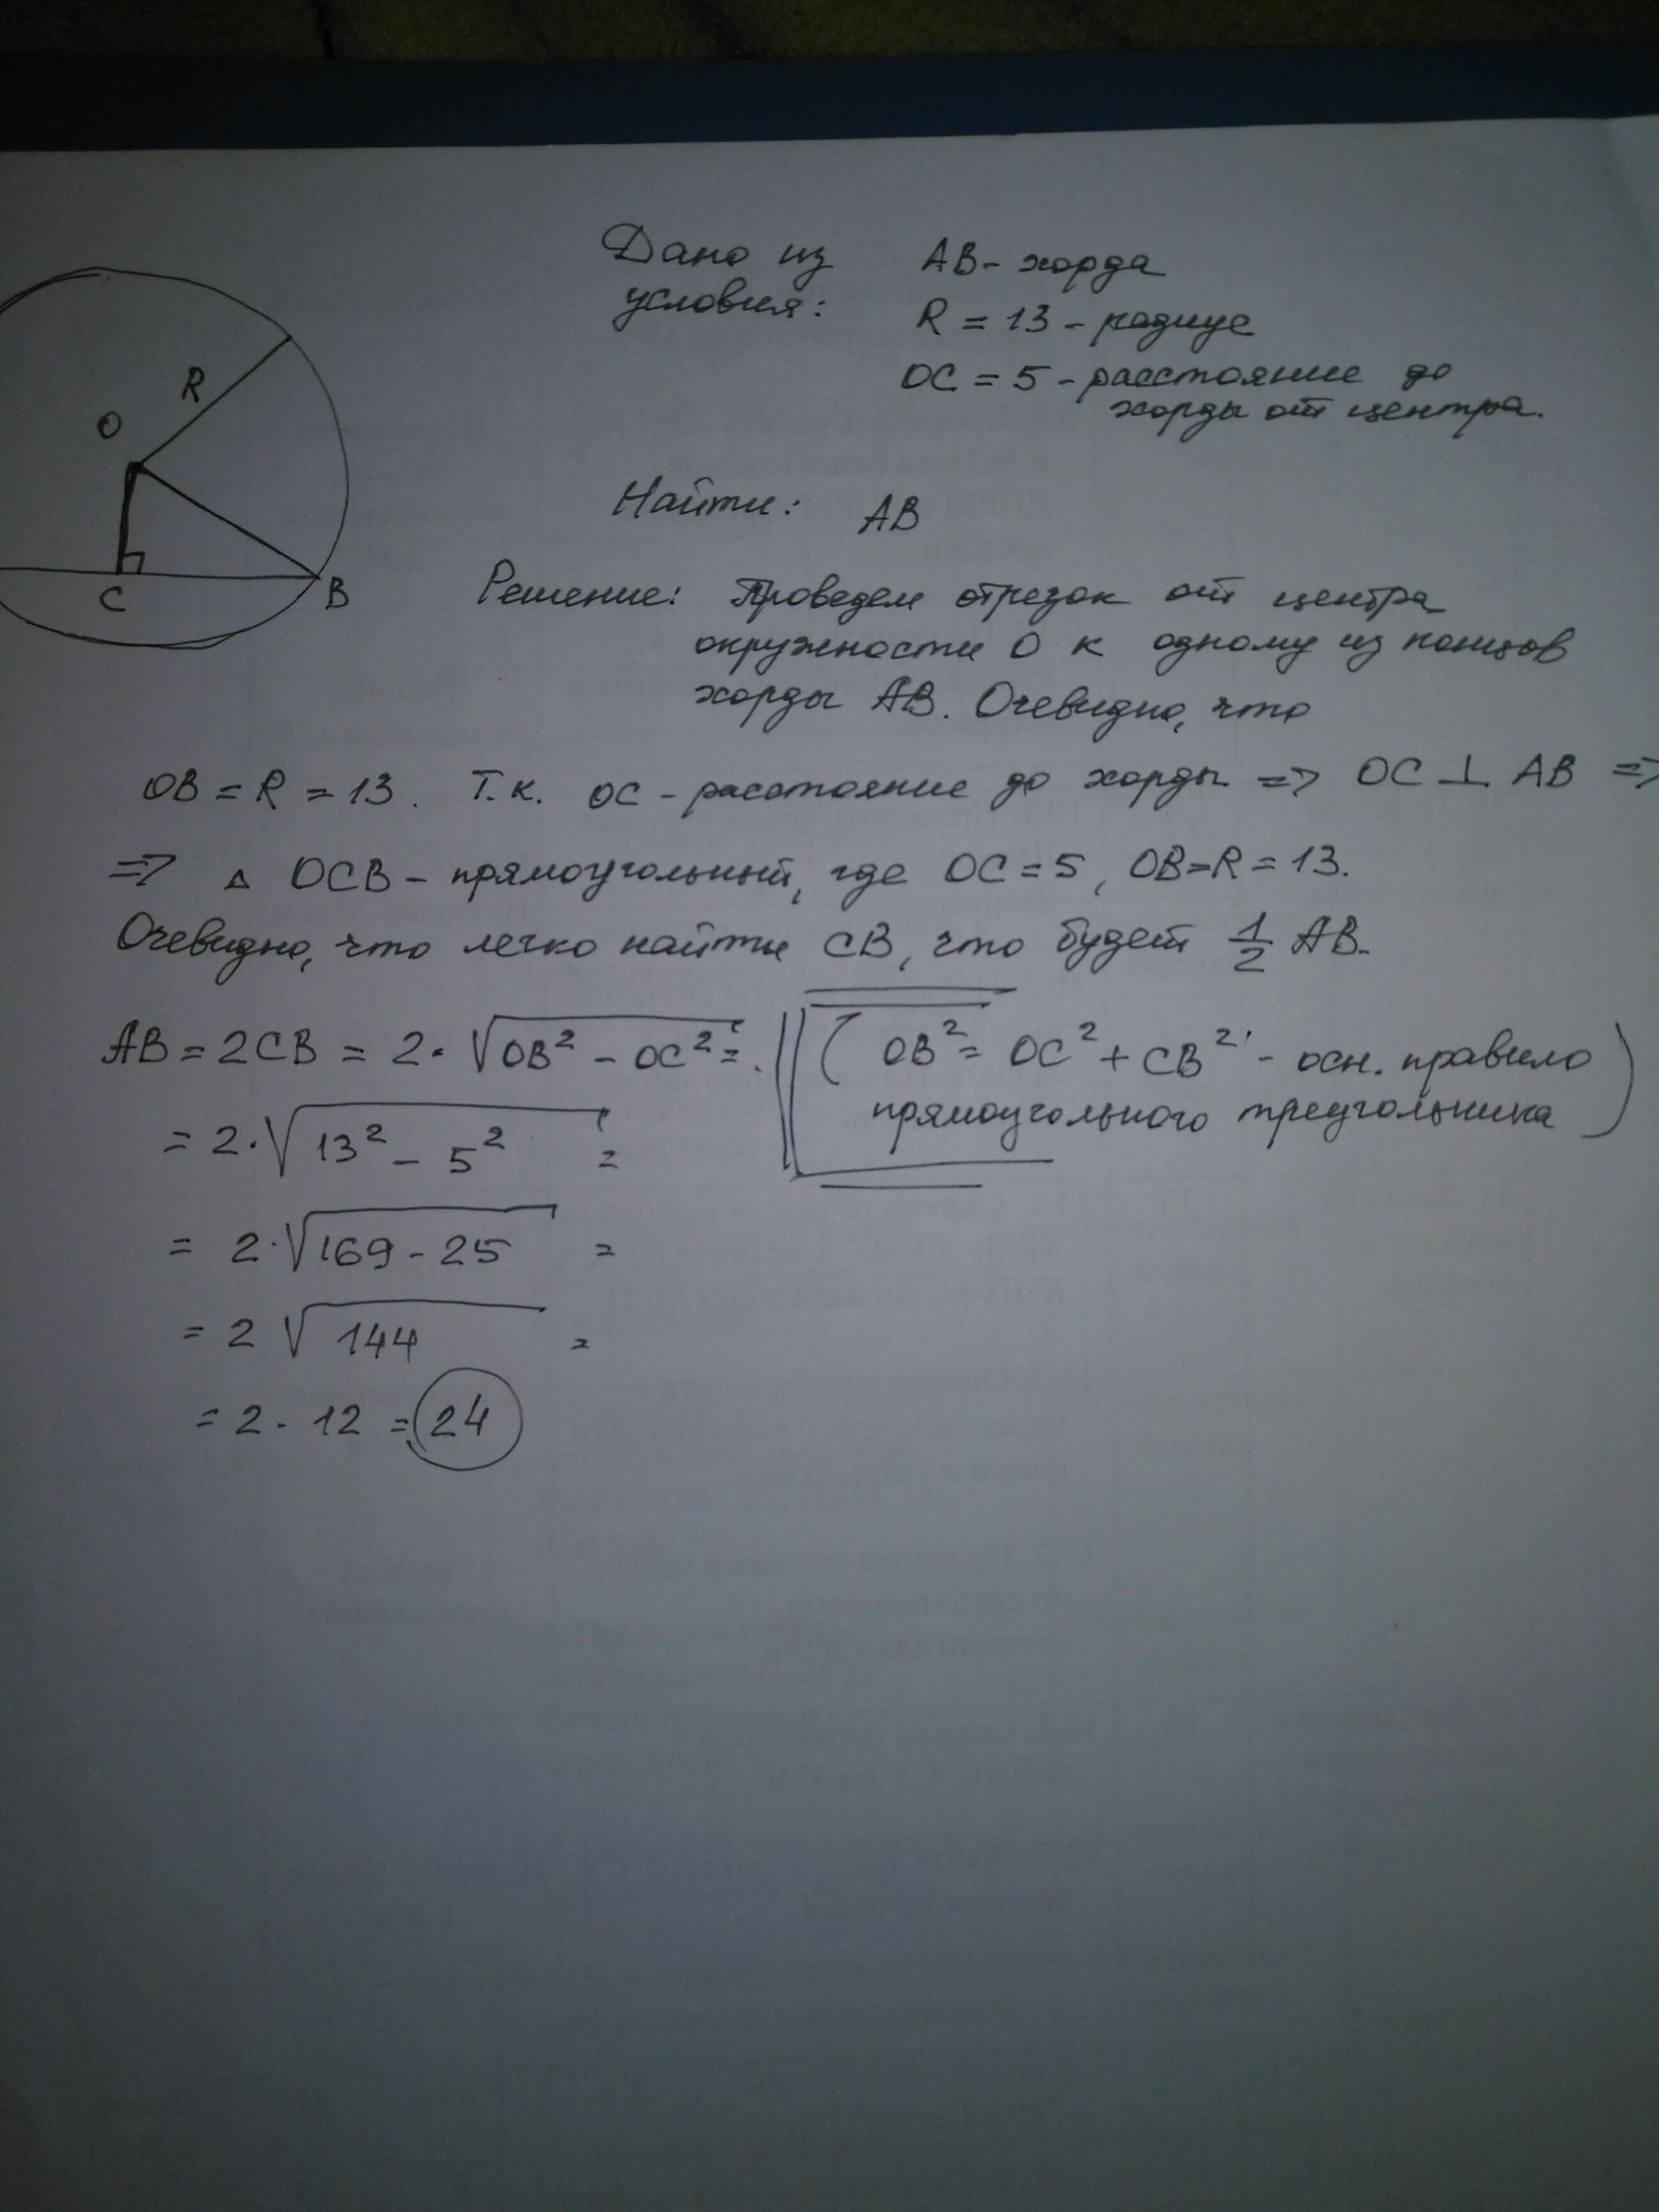 Дано из условия:
AB - хорда
R = 13 - радиус
OC = 5 - расстояние до
хорды от центра.
R
O
C
B
Найти: AB
Решение: Проведем отрезок от центра
окружности O к одному из концов
хорды AB. Очевидно, что
OB = R = 13. Т.к. OC - расстояние до хорды => OC ⊥ AB =>
=> △ OCB - прямоугольный, где OC = 5, OB = R = 13.
Очевидно, что легко найти CB, что будет 1/2 AB.
AB = 2CB = 2 · √(OB² - OC²) =
(OB² = OC² + CB² - осн. правило
прямоугольного треугольника)
= 2 · √(13² - 5²) =
= 2 · √(169 - 25) =
= 2 √144 =
= 2 · 12 = 24